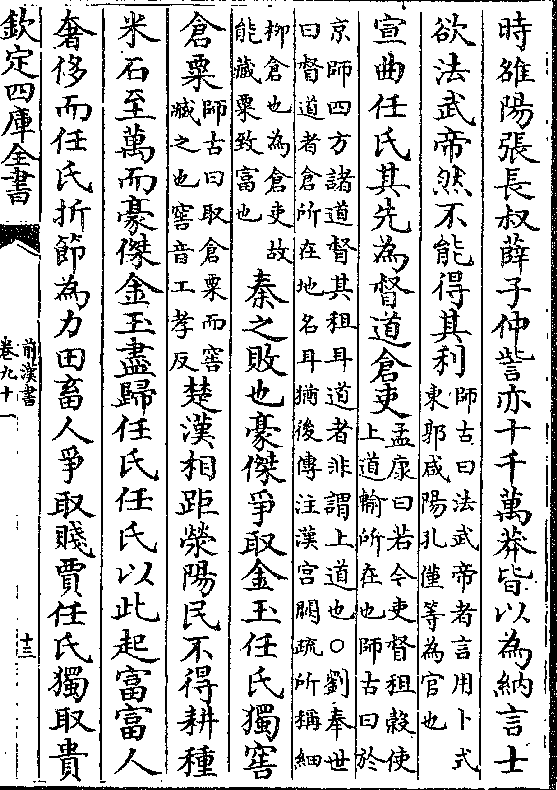 時雒陽張長叔薛子仲訾亦十千萬莽皆以為納言士
欲法武帝然不能得其利
師古曰法武帝者言用卜式
東郭咸陽孔僅等為官也
宣曲任氏其先為督道倉吏
孟康曰若今吏督租穀使
上道輸所在也師古曰於
京師四方諸道督其租耳道者非謂上道也○劉奉世
曰督道者倉所在地名耳猶後傳注漢宫闕疏所稱細
柳倉也為倉吏故
能藏粟致富也
秦之敗也豪傑爭取金玉任氏獨窖
倉粟
師古曰取倉粟而窖
臧之也窖音工孝反
楚漢相距滎陽民不得耕種
米石至萬而豪傑金玉盡歸任氏任氏以此起富富人
奢侈而任氏折節為力田畜人爭取賤賈任氏獨取貴
欽定四庫全書
前漢書
卷九十一
十三